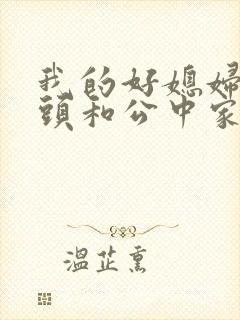 我的好媳婦
頭和公中家
溫芷熏